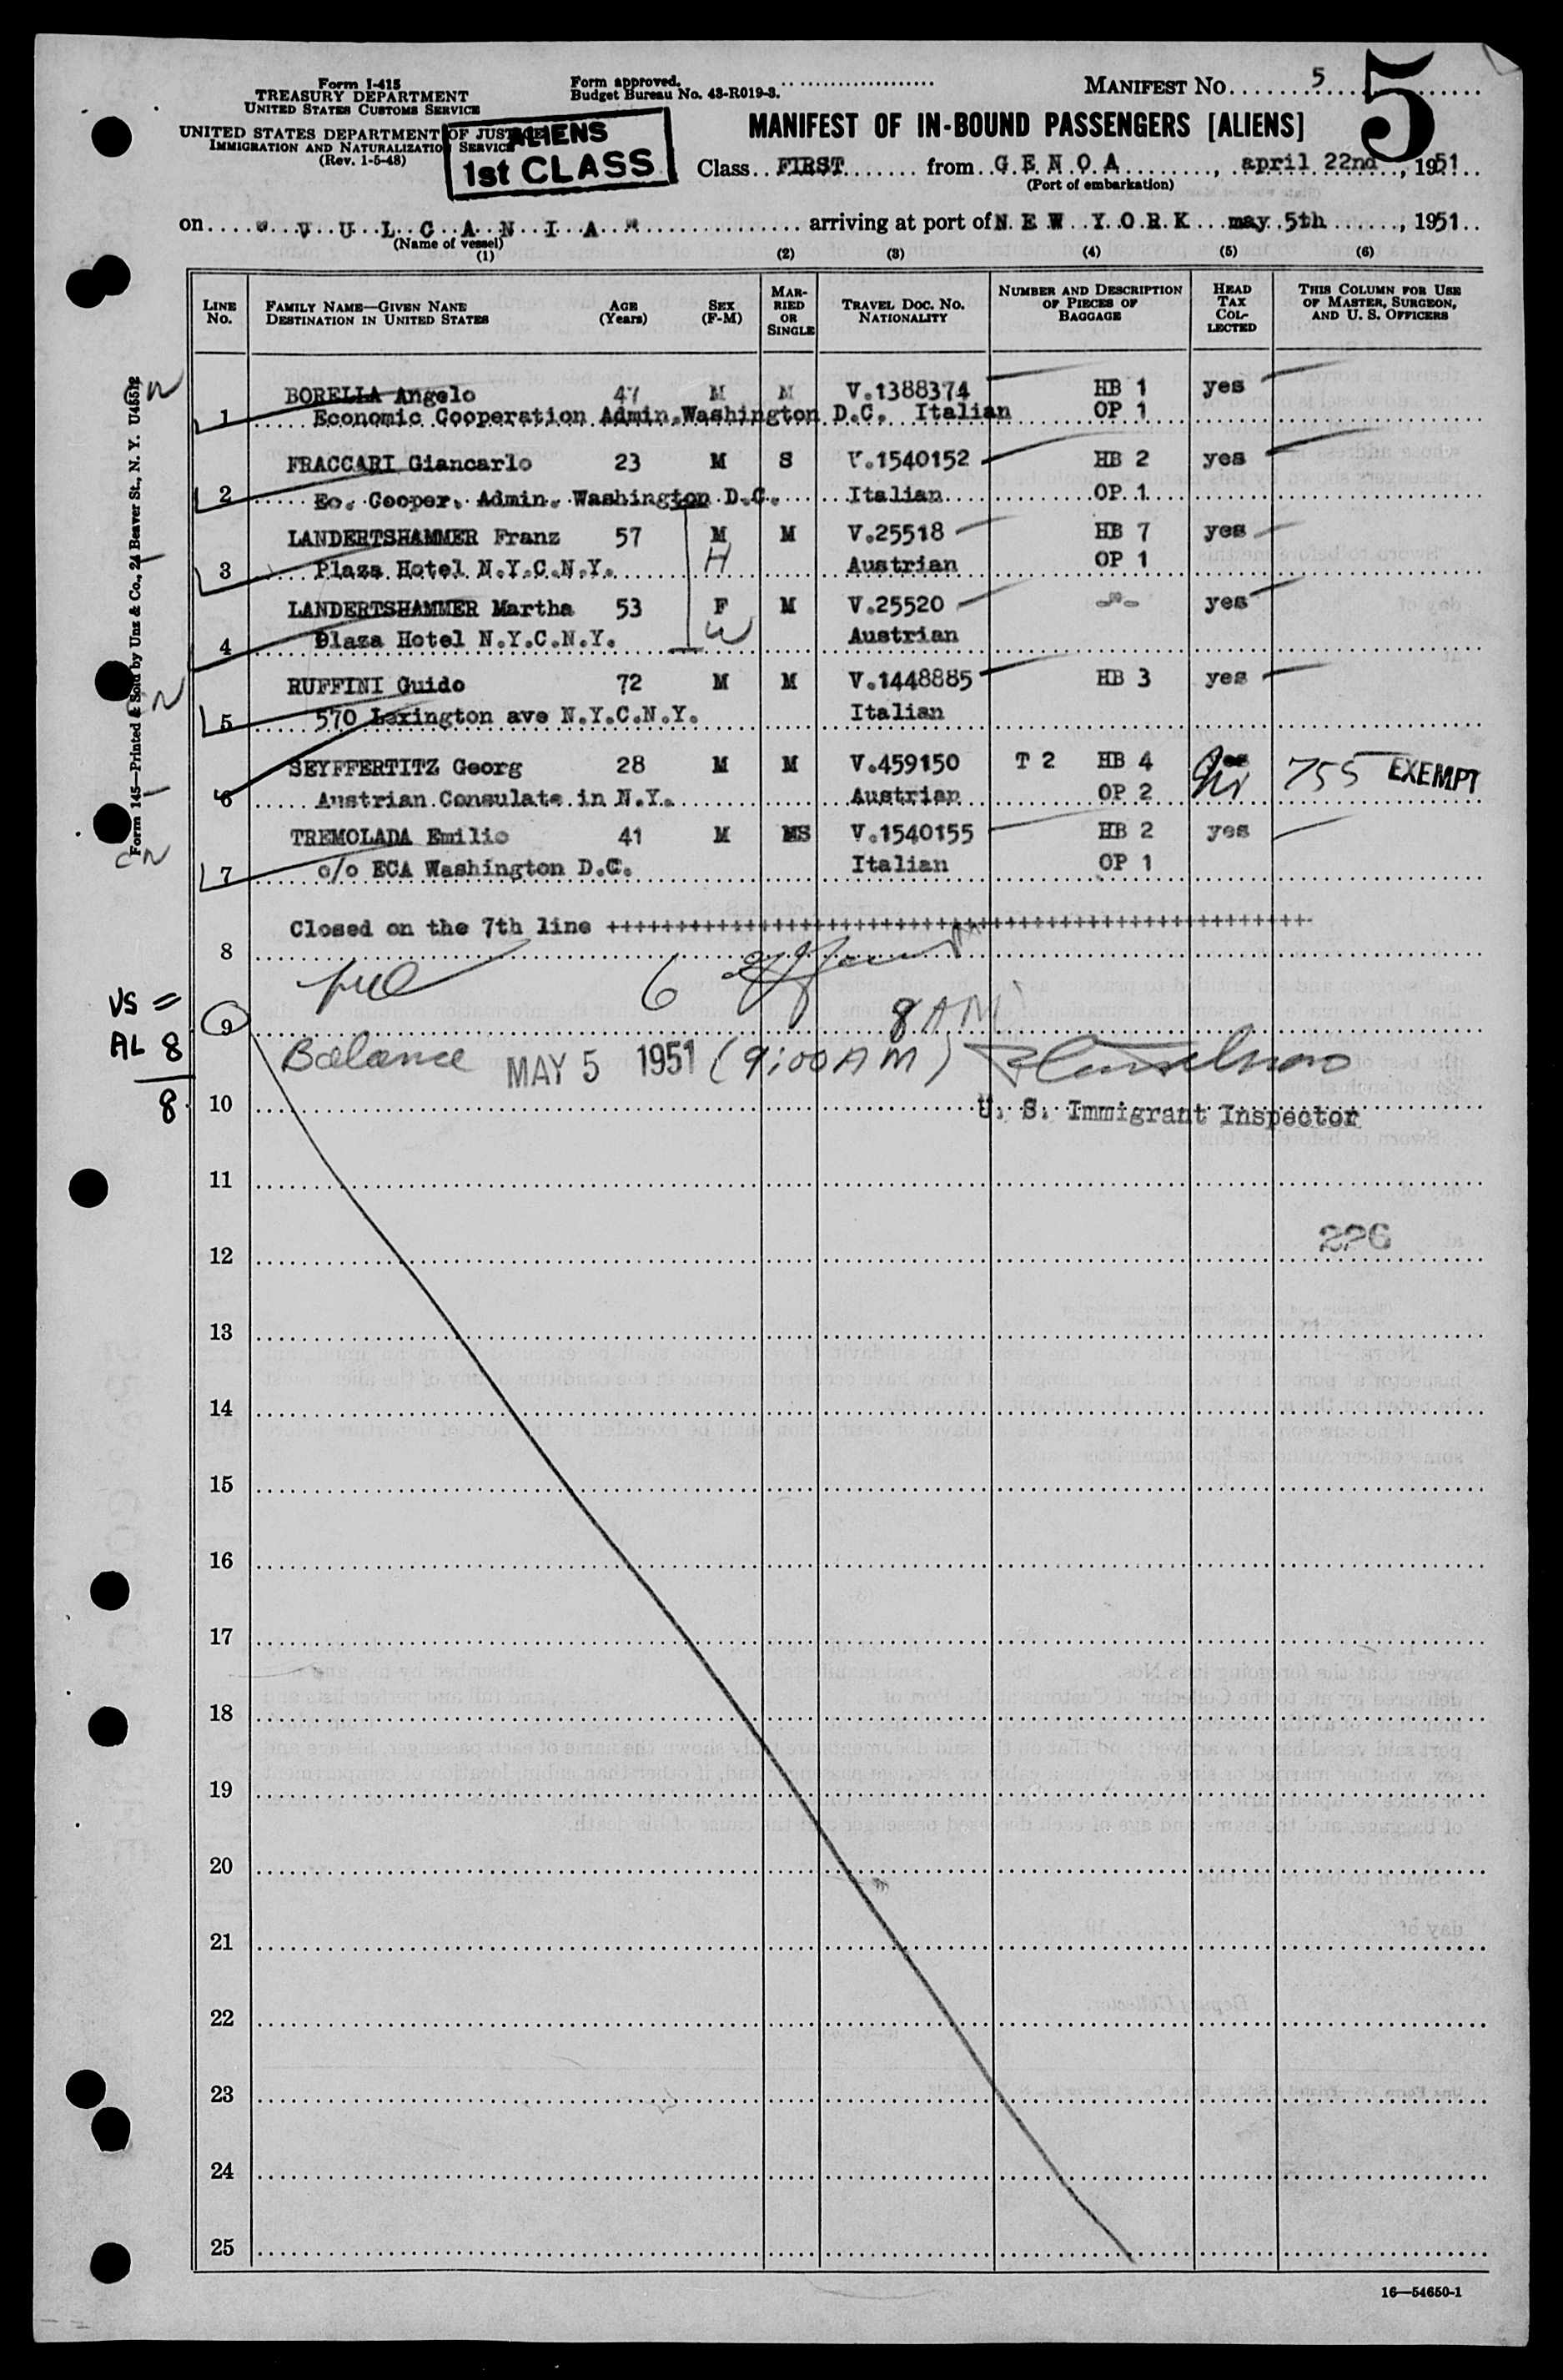 Form I-415
TREASURY DEPARTMENT
UNITED STATES CUSTOMS SERVICE
UNITED STATES DEPARTMENT OF JUSTICE
IMMIGRATION AND NATURALIZATION SERVICE
(Rev. 1-5-48)
Form approved.
Budget Bureau No. 43-R019-3.
ALIENS
1st CLASS
MANIFEST NO. 5
5
MANIFEST OF IN-BOUND PASSENGERS [ALIENS]
Class FIRST from GENOA, april 22nd, 1951
(Port of embarkation)
on "VULCANIA" arriving at port of NEW YORK may 5th, 1951
(Name of vessel)
(1) (2) (3) (4) (5) (6)
LINE No. FAMILY NAME—GIVEN NANE DESTINATION IN UNITED STATES AGE (Years) SEX (F-M) MARRIED OR SINGLE TRAVEL DOC. NO. NATIONALITY NUMBER AND DESCRIPTION OF PIECES OF BAGGAGE HEAD TAX COLLECTED THIS COLUMN FOR USE OF MASTER, SURGEON, AND U. S. OFFICERS
BORELLA Angelo 47 M M V.1388374 HB 1 yes
1 Economic Cooperation Admin.Washington D.C. Italian OP 1
FRACCARI Giancarlo 23 M S V.1540152 HB 2 yes
2 Ec. Cooper. Admin. Washington D.C. Italian OP 1
LANDERTSHAMMER Franz 57 M M V.25518 HB 7 yes
3 Plaza Hotel N.Y.C.N.Y. H Austrian OP 1
LANDERTSHAMMER Martha 53 F M V.25520 -"- yes
4 Plaza Hotel N.Y.C.N.Y. W Austrian
RUFFINI Guido 72 M M V.1448885 HB 3 yes
5 570 Lexington ave N.Y.C.N.Y. Italian
SEYFFERTITZ Georg 28 M M V.459150 T 2 HB 4 yes 755 EXEMPT
6 Austrian Consulate in N.Y. Austrian OP 2
TREMOLADA Emilio 41 M MS V.1540155 HB 2 yes
7 c/o ECA Washington D.C. Italian OP 1
Closed on the 7th line ++++++++++++++++++++++++++++++++++++++++++++++++++++
8
6
VS =
9 8 AM
AL 8
Balance MAY 5 1951 (9:00 AM)
8
10 U. S. Immigrant Inspector
11
12 226
13
14
15
16
17
18
19
20
21
22
23
24
25
16—54650-1
Form 145—Printed & Sold by Unz & Co., 24 Beaver St., N. Y.